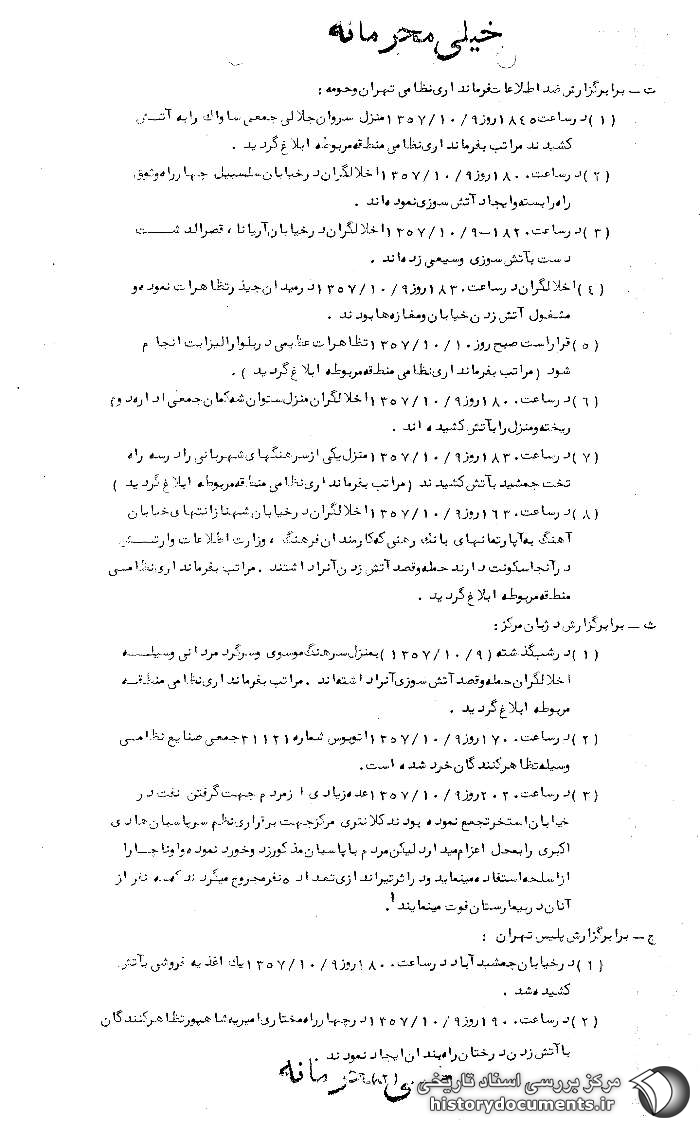 خیلی محرمانه
ت ـ برابر گزارش ضد اطلاعات فرمانداری نظامی تهران و حومه :
(۱) در ساعت ۱۸٤۵ روز ۱۳۵۷/۱۰/۹ منزل سروان جلالی جمعی ساواك را به آتش
کشیدند مراتب بفرمانداری نظامی منطقه مربوطه ابلاغ گردید .
(۲) در ساعت ۱۸۰۰ روز ۱۳۵۷/۱۰/۹ اخلالگران در خیابان سلسبیل چهار راه وثیق
راه را بسته و ایجاد آتش سوزی نموده اند .
(۳) در ساعت ۱۸۲۰ ـ ۱۳۵۷/۱۰/۹ اخلالگران در خیابان آریانا ، قصرالدشت
دست بآتش سوزی وسیعی زده اند .
(٤) اخلالگران در ساعت ۱۸۳۰ روز ۱۳۵۷/۱۰/۹ در میدان جیذر تظاهرات نموده و
مشغول آتش زدن خیابان و مغازه ها بودند .
(۵) قرار است صبح روز ۱۳۵۷/۱۰/۱۰ تظاهرات عظیمی در بلوار الیزابت انجام
شود ( مراتب بفرمانداری نظامی منطقه مربوطه ابلاغ گردید ) .
(٦) در ساعت ۱۸۰۰ روز ۱۳۵۷/۱۰/۹ اخلالگران منزل ستوان شه کمان جمعی اداره دوم
ریخته و منزل را بآتش کشیده اند .
(۷) در ساعت ۱۸۳۰ روز ۱۳۵۷/۱۰/۹ منزل یکی از سرهنگهای شهربانی را در سه راه
تخت جمشید بآتش کشیدند ( مراتب بفرمانداری نظامی منطقه مربوطه ابلاغ گردید )
(۸) در ساعت ۱٦۳۰ روز ۱۳۵۷/۱۰/۹ اخلالگران در خیابان شهناز انتهای خیابان
آهنگ به آپارتمانهای بانك رهنی که کارمندان فرهنگ ، وزارت اطلاعات و ارتش
در آنجا سکونت دارند حمله و قصد آتش زدن آنرا داشتند . مراتب بفرمانداری نظامی
منطقه مربوطه ابلاغ گردید .
ث ـ برابر گزارش دژبان مرکز :
(۱) در شب گذشته ( ۱۳۵۷/۱۰/۹ ) بمنزل سرهنگ موسوی و سرگرد مردانی وسیله
اخلالگران حمله و قصد آتش سوزی آنرا داشته اند . مراتب بفرمانداری نظامی منطقه
مربوطه ابلاغ گردید .
(۲) در ساعت ۱۷۰۰ روز ۱۳۵۷/۱۰/۹ اتوبوس شماره ۳۱۱۲۱ جمعی صنایع نظامی
وسیله تظاهرکنندگان خرد شده است .
(۳) در ساعت ۲۰۲۰ روز ۱۳۵۷/۱۰/۹ عده زیادی از مردم جهت گرفتن نفت در
خیابان استخر تجمع نموده بودند کلانتری مرکز جهت برقراری نظم سرپاسبان هادی
اکبری را بمحل اعزام میدارد لیکن مردم با پاسبان مذکور زد و خورد نموده و او ناچارا
از اسلحه استفاده مینماید و در اثر تیراندازی تعداد ۵ نفر مجروح میگردند که سه نفر از
آنان در بیمارستان فوت مینمایند .
ج ـ برابر گزارش پلیس تهران :
(۱) در خیابان جمشید آباد در ساعت ۱۸۰۰ روز ۱۳۵۷/۱۰/۹ یك اغذیه فروشی بآتش
کشیده شد .
(۲) در ساعت ۱۹۰۰ روز ۱۳۵۷/۱۰/۹ در چهار راه مختاری امیریه شاهپور تظاهرکنندگان
با آتش زدن درختان راه بندان ایجاد نمودند .
مرکز بررسی اسناد تاریخی
historydocuments.ir